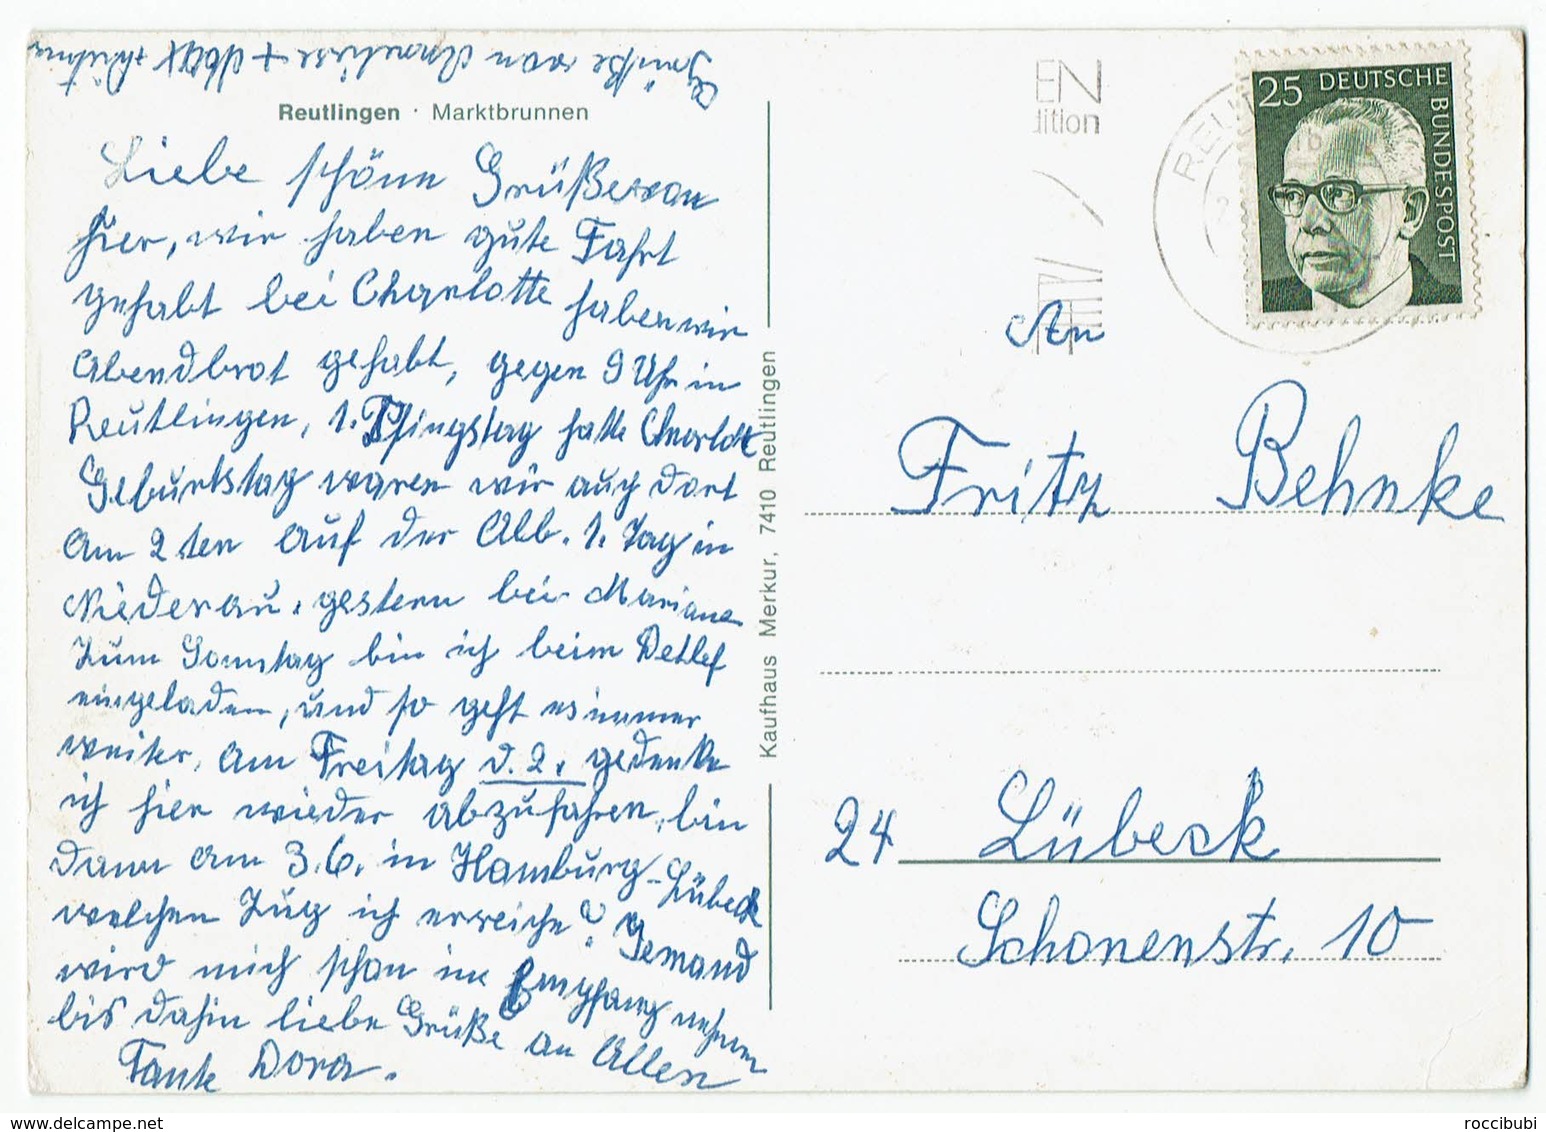 Grüße von
Reutlingen · Marktbrunnen
Liebe schöne Grüße von
hier, wir haben gute Fahrt
gehabt bei Charlotte haben wir
Abendbrot gehabt, gegen 9 Uhr in
Reutlingen, 1. Pfingstag hatte Charlotte
Geburtstag waren wir auch dort
Am 2ten auf der Alb. 1. Tag in
Niedernau. gestern bei Mariane
Zum Sonntag bin ich beim Detlef
eingeladen, und so geht es immer
weiter. Am Freitag d. 2. gedenke
ich hier wieder abzufahren, bin
dann am 3.6. in Hamburg-Lübeck
welchen Zug ich erreiche? Jemand
wird mich schon in Empfang nehmen
bis dahin liebe Grüße an Allen
Tante Dora.
Kaufhaus Merkur, 7410 Reutlingen
EN
dition
REU
25 DEUTSCHE BUNDESPOST
An
Fritz Behnke
24 Lübeck
Schonenstr. 10
roccibubi